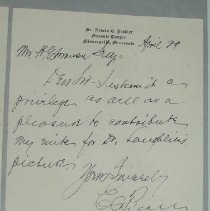 Masonic Temple
Minneapolis, Minnesota
April 29
Dear Sir, I esteem it a
privilege as well as a
pleasure to contribute
my mite for Dr. Laughlin's
picture
Yours Sincerely